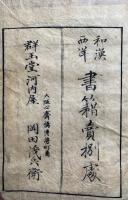 和漢
西洋
書籍賣捌處
大阪心齋橋博労町角
群玉堂河内屋
岡田茂兵衛